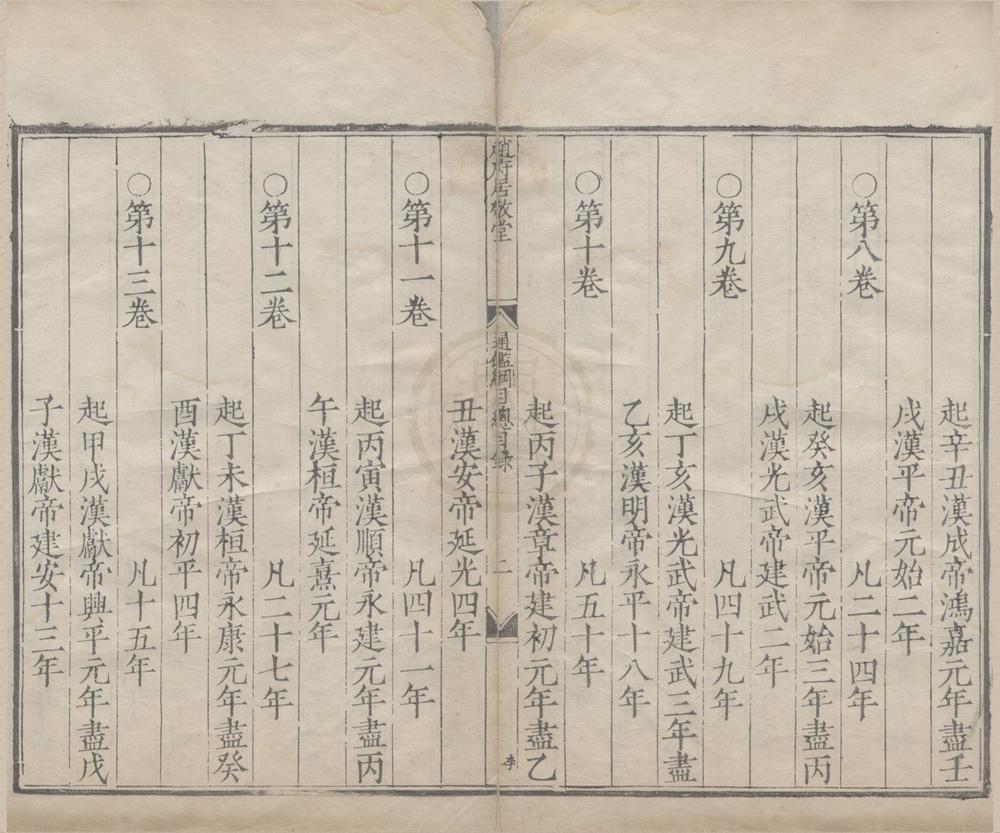 起辛丑漢成帝鴻嘉元年盡壬
戌漢平帝元始二年
○第八卷　凡二十四年
起癸亥漢平帝元始三年盡丙
戌漢光武帝建武二年
○第九卷　凡四十九年
起丁亥漢光武帝建武三年盡
乙亥漢明帝永平十八年
○第十卷　凡五十年
起丙子漢章帝建初元年盡乙
趙府居敬堂　通鑑綱目總目錄　二　李
丑漢安帝延光四年
○第十一卷　凡四十一年
起丙寅漢順帝永建元年盡丙
午漢桓帝延熹元年
○第十二卷　凡二十七年
起丁未漢桓帝永康元年盡癸
酉漢獻帝初平四年
○第十三卷　凡十五年
起甲戌漢獻帝興平元年盡戊
子漢獻帝建安十三年